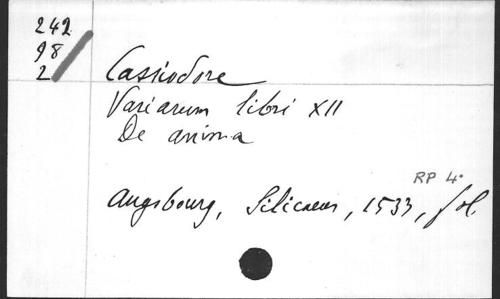 242
98
2
Cassiodore
Variarum libri XII
De anima
RP 4°
Augsbourg, Siliceus, 1533, fol.